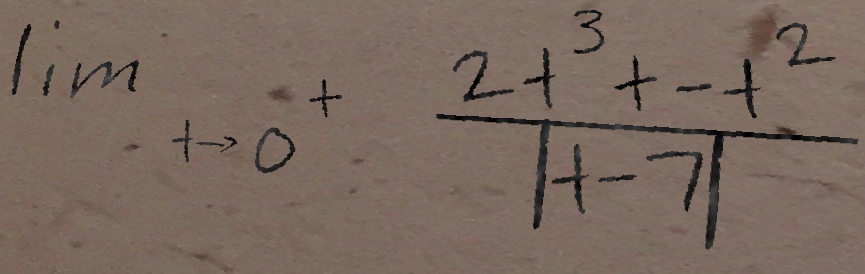 \lim_{t \to 0^+} \frac{2t^3 + -t^2}{|t-7|}